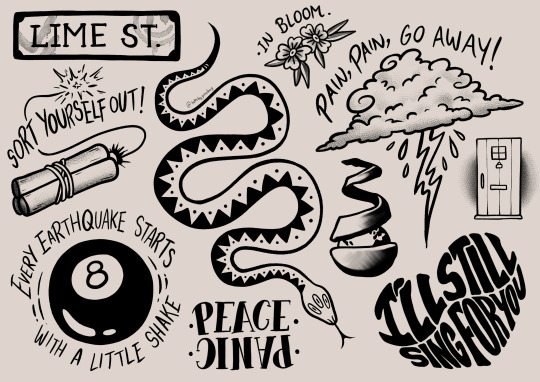 LIME ST.
·IN BLOOM.·
PAIN, PAIN, GO AWAY!
SORT YOURSELF OUT!
EVERY EARTHQUAKE STARTS
8
WITH A LITTLE SHAKE
·PEACE·
·PANIC·
I'LL STILL
SING FOR YOU